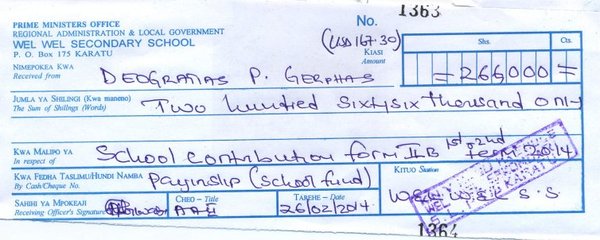 1363
PRIME MINISTERS OFFICE No.
REGIONAL ADMINISTRATION & LOCAL GOVERNMENT
WEL WEL SECONDARY SCHOOL
P. O. Box 175 KARATU
(USD 167.30) KIASI Amount Shs. Cts.
NIMEPOKEA KWA
Received from DEOGRATIAS P. GERPHAS =266,000=
JUMLA YA SHILINGI (Kwa maneno)
The Sum of Shillings (Words) Two hundred sixty six thousand only
KWA MALIPO YA
In respect of School contribution form II B 1st & 2nd term 2014
KWA FEDHA TASLIMU/HUNDI NAMBA
By Cash/Cheque No. Payinslip (school fund) KITUO Station
SAHIHI YA MPOKEAJI
Receiving Officer's Signature CHEO - Title TAREHE - Date
26/02/2014
KARATU
1364